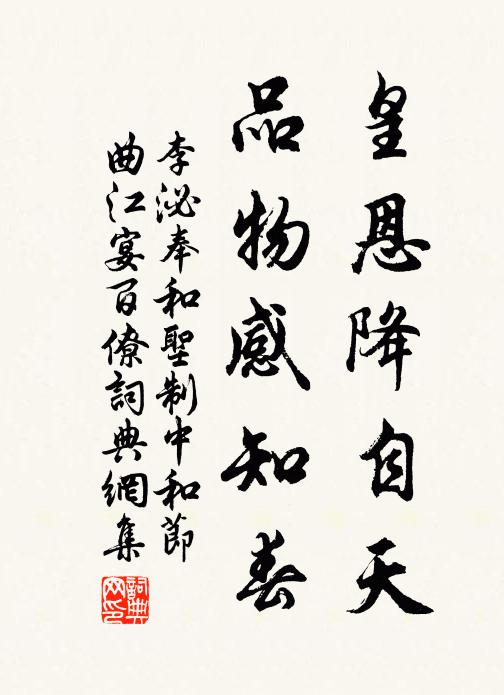 皇恩降自天
品物感知春
李泌奉和聖制中和節
曲江宴百僚詞典網集
詞典
网印